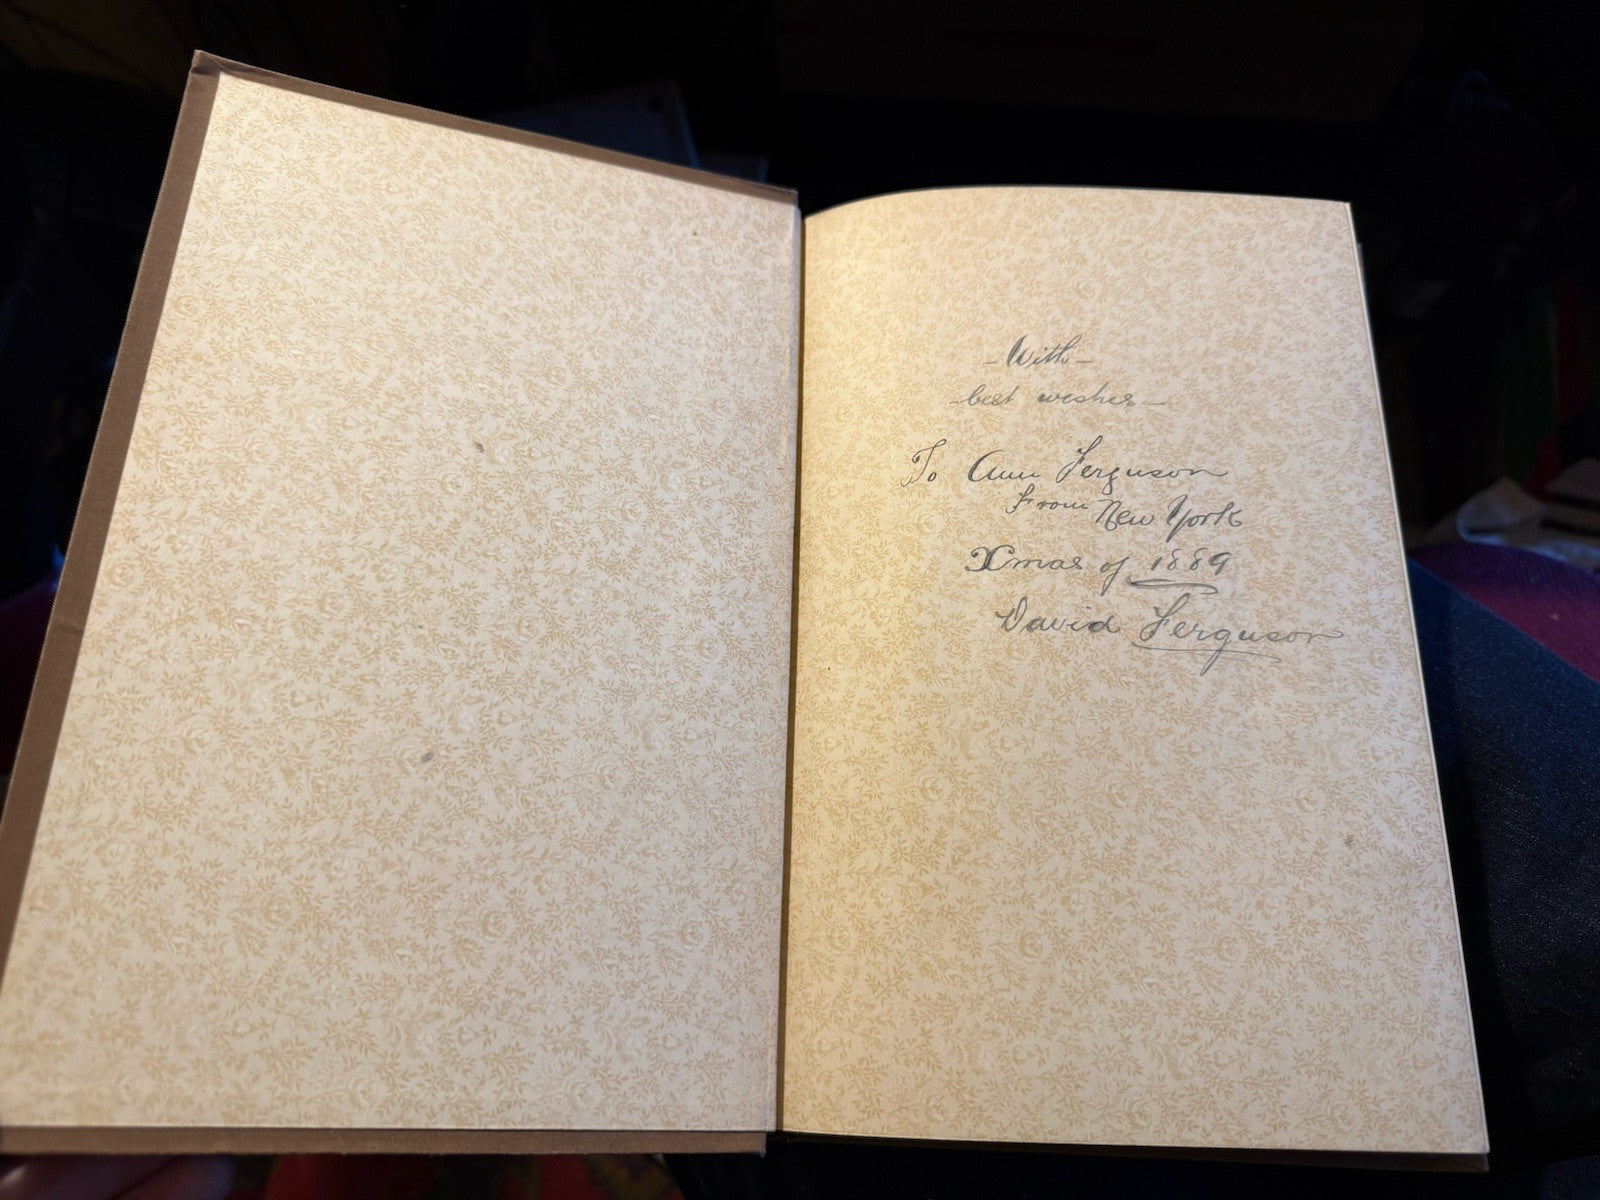 - With -
- best wishes -
To Ann Ferguson
From New York
Xmas of 1889
David Ferguson